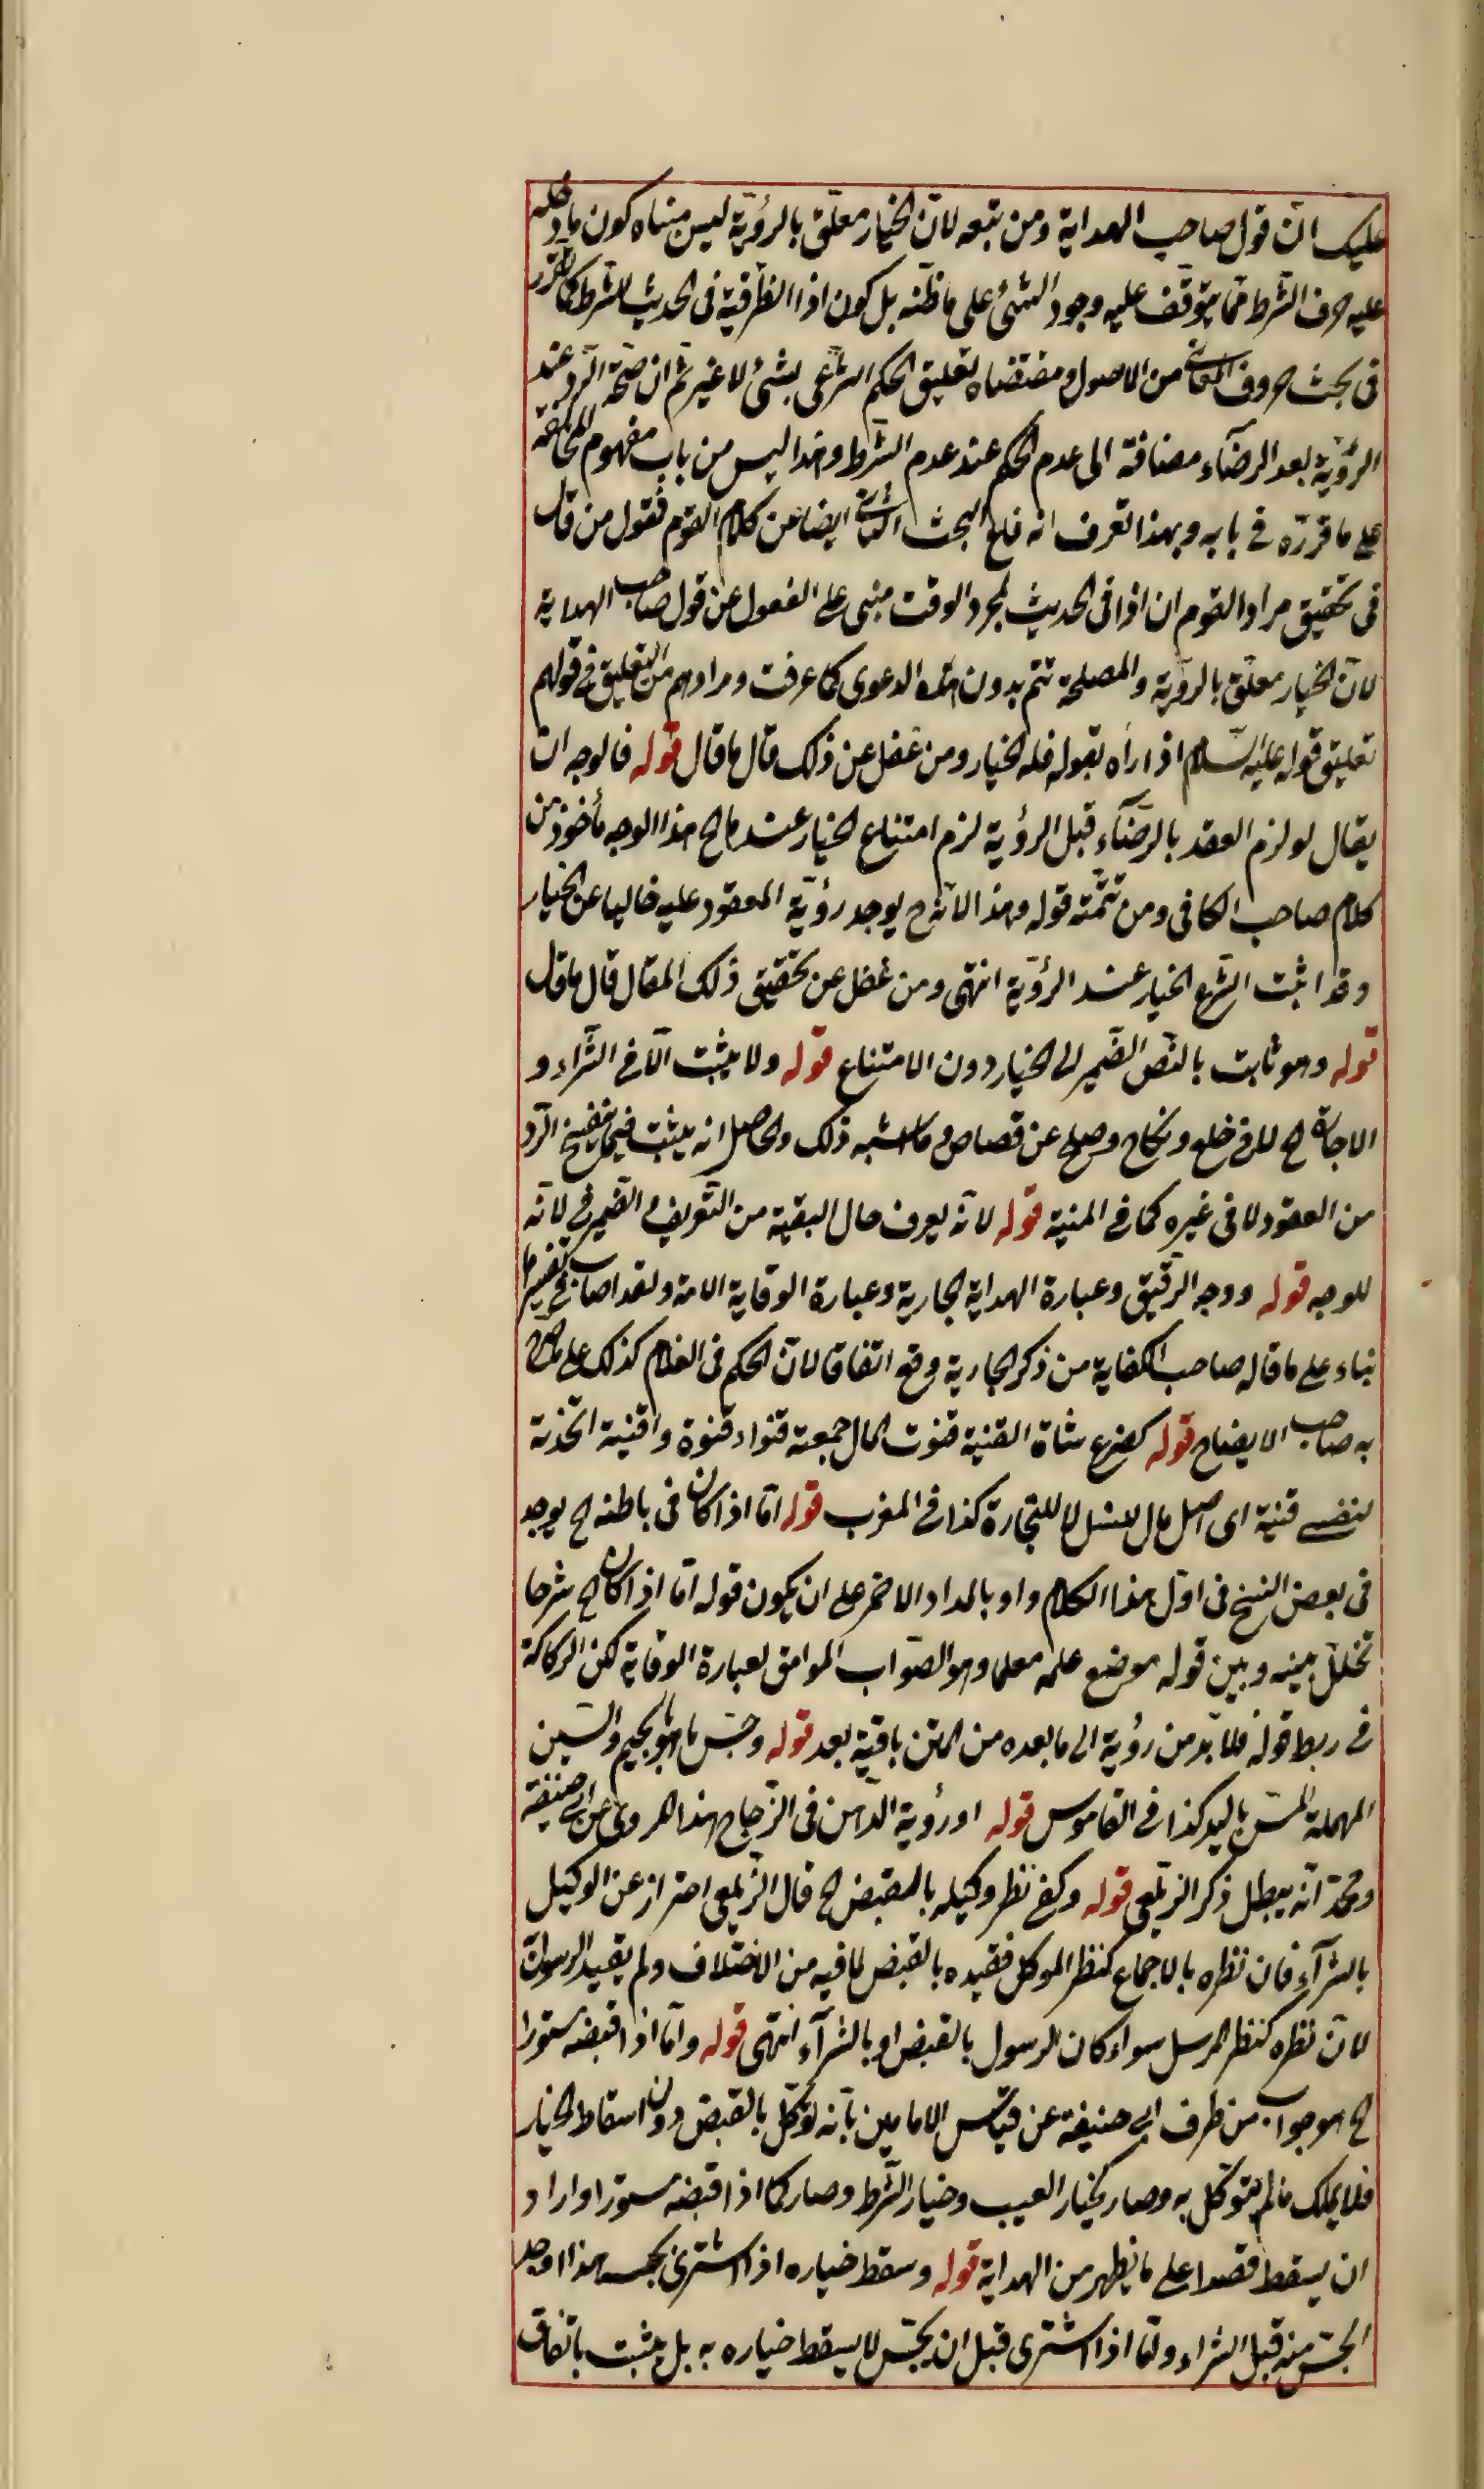 عليك انّ قول صاحب الهداية ومن تبعه لانّ الخيار معلّق بالرؤية ليس مبناه كون ما دخله
عليه حرف الشّرط ممّا يتوقّف عليه وجود الشئ على ما ظنّه بل كون اذا الظرفية فى الحديث للشرط كما تقرّر
فى بحث حروف المعانى من الاصول ومقتضاه تعليق الحكم الشّرعى بشئ لا غير ثم ان صحّة الرّد عند
الرؤية بعد الرضآء مضافة الى عدم الحكم عند عدم الشّرط وهذا ليس من باب مفهوم المخالفة
على ما قررّه فى بابه وبهذا تعرف انه البحث الثانى ايضا عن كلام القوم فقول من قال
فى تحقيق مراد القوم ان اذا فى الحديث لمجرد الوقت مبنى على الغفول عن قول صاحب الهداية
لانّ الخيار معلّق بالرؤية والمصلحة تتم بدون هذه الدعوى كما عرفت ومرادهم من التعليق فى قولهم
تعليق قوله عليه السّلام اذا رأه بقوله فله الخيار ومن غفل عن ذلك قال ما قال قوله فالوجه ان
يقال لو لزم العقد بالرضآء قبل الرؤية لزم امتناع الخيار عندها الخ هذا الوجه مأخوذ من
كلام صاحب الكافى ومن تتمّته قوله وهذا لانّه ح يوجد رؤية المعقود عليه خاليا عن الخيار
وقد اثبت الشّرع الخيار عند الرؤية انتهى ومن غفل عن تحقيق ذلك المقال قال ما قال
قوله وهو ثابت بالنّص الضّمير الى الخيار دون الامتناع قوله ولا يثبت الّا فى الشّراء و
الاجارة الخ لا فى خلع ونكاح وصلح عن قصاص وما اشبه ذلك والحاصل انه يثبت فيما ينفسخ بالرّد
من العقود لا فى غيره كما فى المنية قوله لانّه يعرف حال البقية من التّعريف والضّمير فى لانّه
للوجه قوله ووجه الرّقيق وعبارة الهداية الجارية وعبارة الوقاية الامة ولقد اصاب فى تغييرها
بناء على ما قاله صاحب الكفاية من ذكر الجارية وقع اتفاقا لانّ الحكم فى الغلام كذلك على ما صرّح
به صاحب الايضاح قوله كضرع شاة القنية قنوت المال جمعته قنوا وقنوة واقنيته اتخذته
لنفسى قنية اى اصل مال للنسل لا للتجارة كذا فى المغرب قوله امّا اذا كان فى باطنه الخ يوجد
فى بعض النسخ فى اوّل هذا الكلام واو بالمداد الاحمر على ان يكون قوله امّا اذا كان الخ شرحا
تخلّل بينه وبين قوله موضع علمه معلما وهو الصّواب الموافق لعبارة الوقاية لكن الركاكة
فى ربط قوله فلا بّد من رؤية الى ما بعده من المتن باقية بعد قوله وجسّ ما هو بالجيم والسّين
المهملة المسّ باليد كذا فى القاموس قوله او رؤية الدّهن فى الزّجاج هذا المروى عن ابى حنيفة
ومحمّد انّه يبطل ذكر الزيلعى قوله وكفى نظر وكيله بالمقبض الخ قال الزّيلعى احتراز عن الوكيل
بالشّرآء فان نظره بالاجماع كنظر الموكل فقيده بالقبض لما فيه من الاختلاف ولم يقيد الرسول
لانّ نظره كنظر المرسل سواء كان الرسول بالقبض او بالشّرآء انتهى قوله وامّا اذا قبضه مستورا
الخ هو جواب من طرف ابى حنيفة عن قياس الامامين بأنّه توكّل بالقبض دون اسقاط الخيار
فلا يملك مالم يتوكّل به وصار كخيار العيب وخيار الشّرط وصار كما اذا قبضه مستورا واراد
ان يسقط قصدا على ما يظهر من الهداية قوله وسقط خياره اذا اشترى بجسه هذا اذا وجد
الجسّ منه قبل الشراء وامّا اذا اشترى قبل ان يجسّ لا يسقط خياره به بل يثبت باتفاق